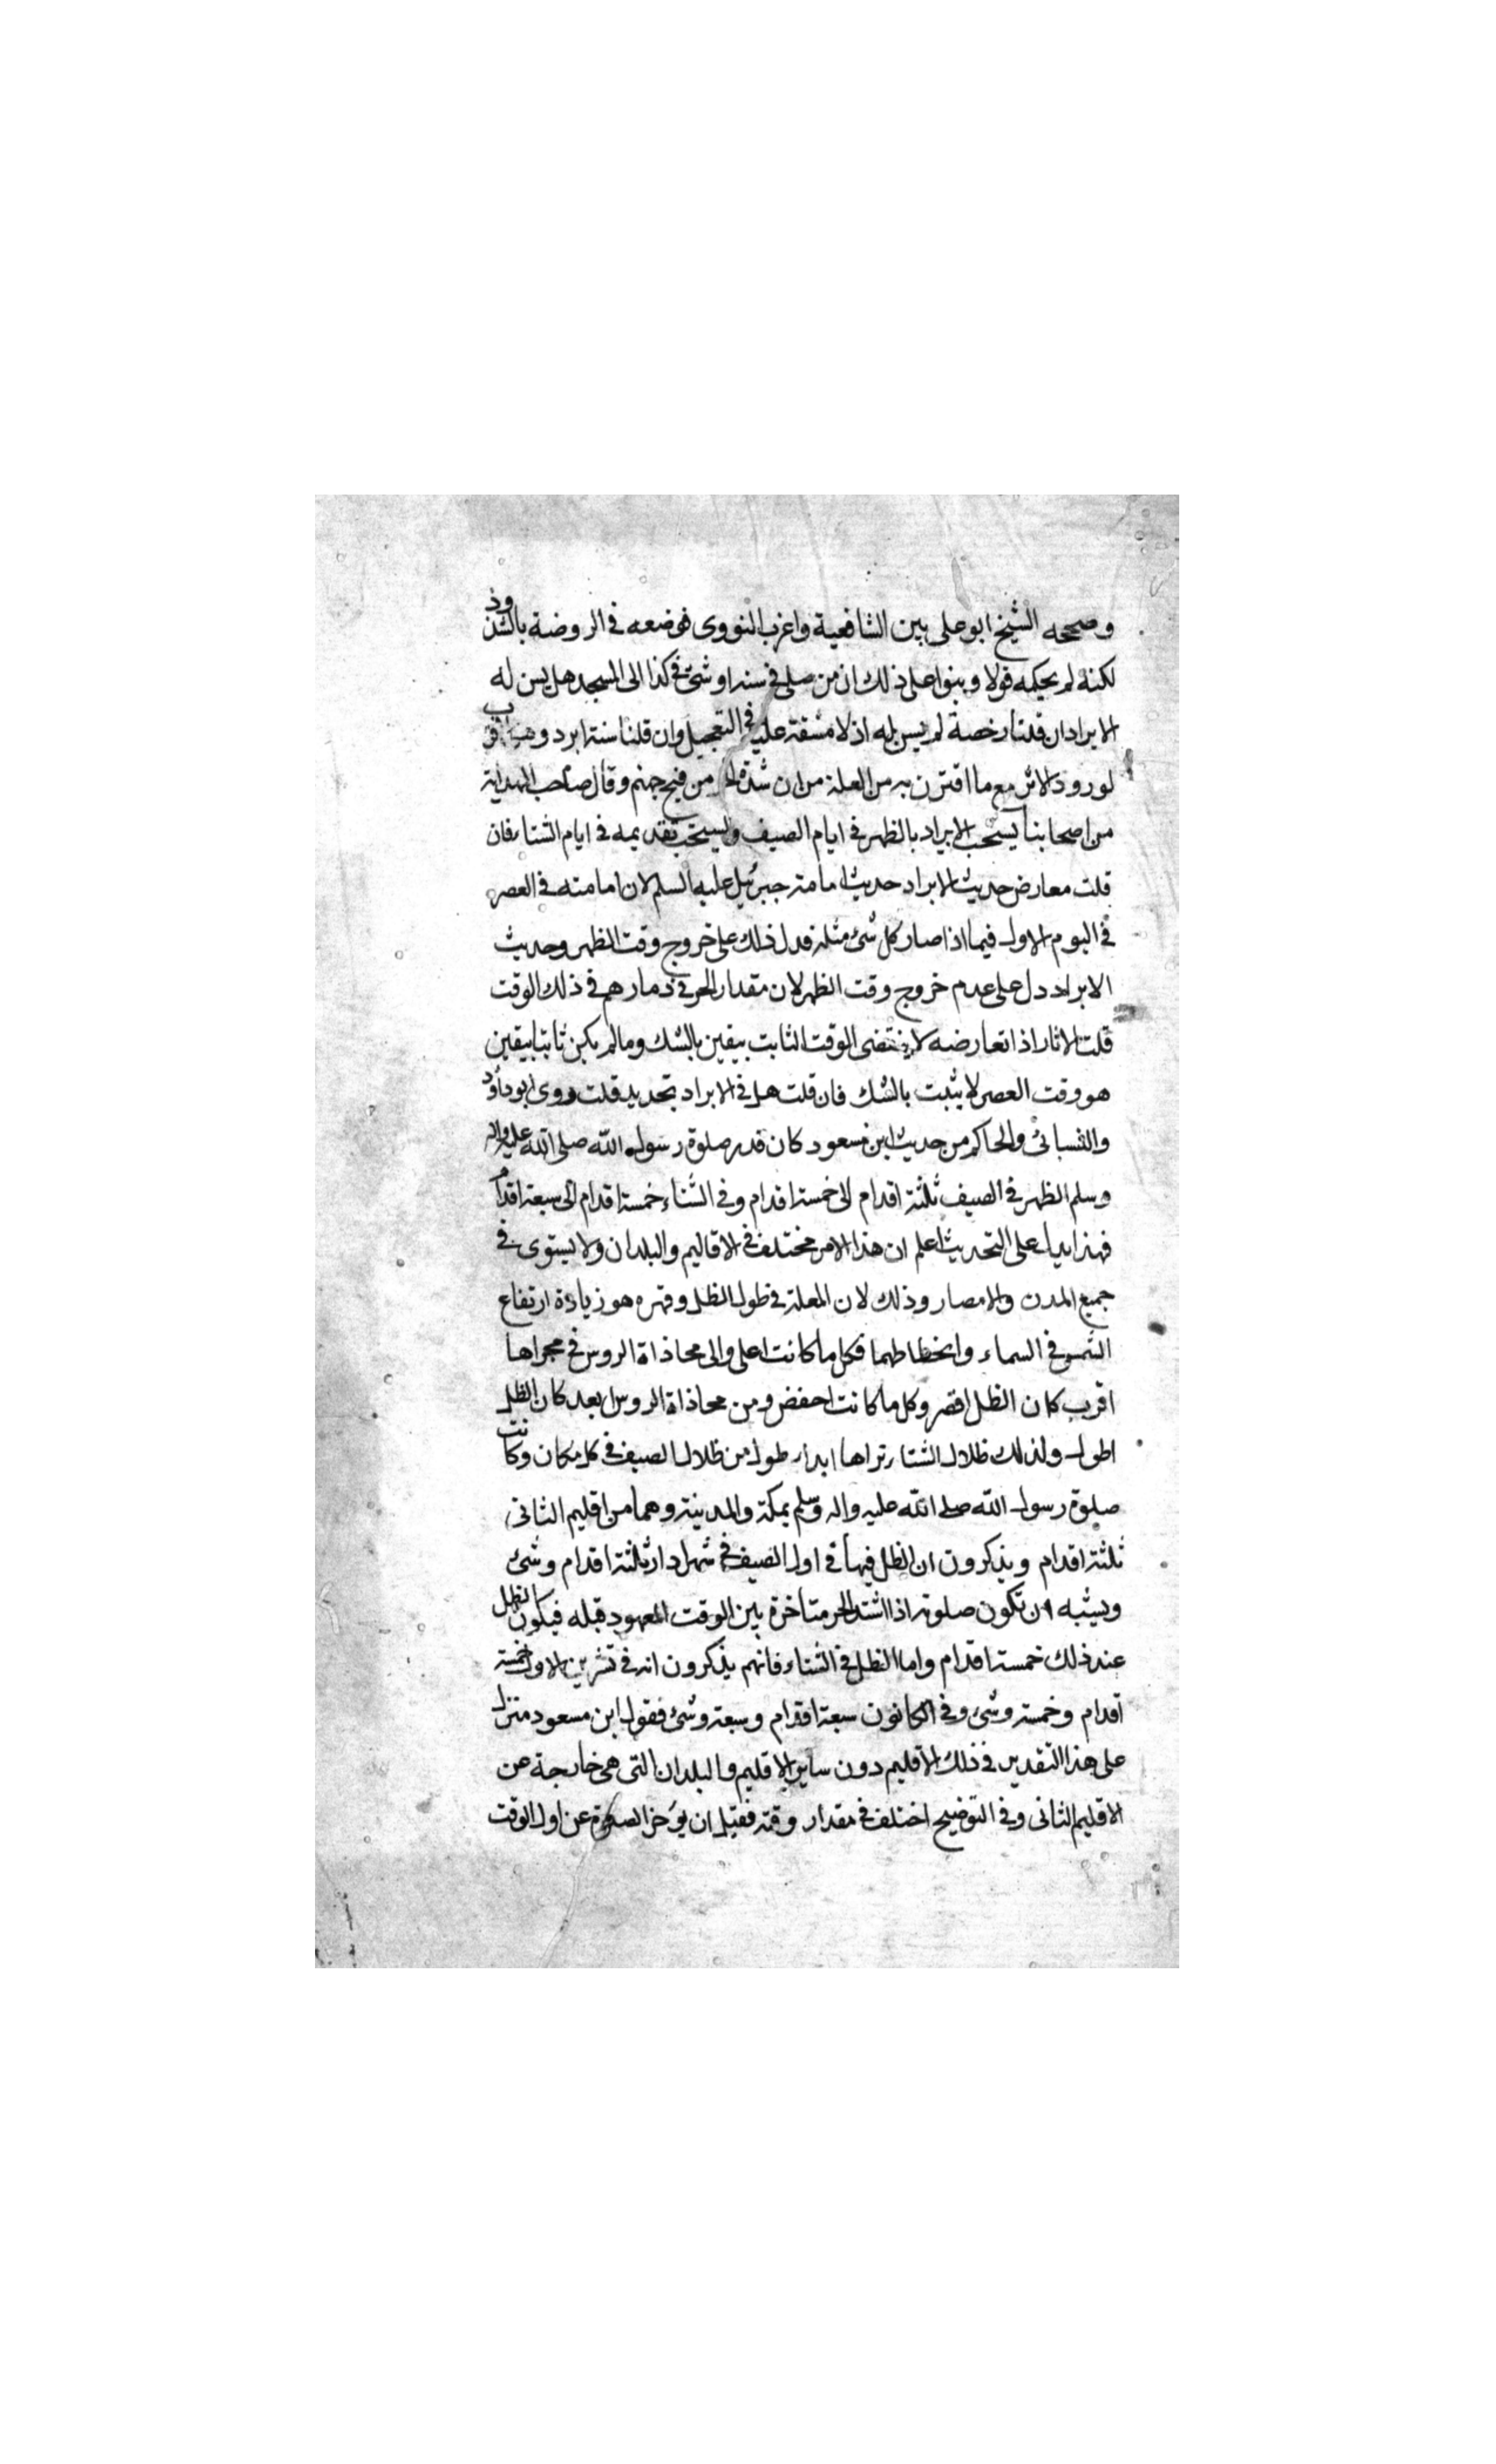 وصححه الشيخ ابو على بين الشافعية واغرب النووى فوضعه فى الروضة بالشذوذ
لكنه لم يحكه قولا وبنوا على ذلك ان من صلى فى بيته او مشى فى كذا الى المسجد هل يسن له
الابراد ان قلنا رخصة لم يسن له اذ لا مشقة عليه فى التعجيل وان قلنا سنة ابرد وهو
لورود الاثر مع ما اقترن به من العلة من ان شدة الحر من فيح جهنم وقال صاحب الهداية
من اصحابنا يستحب الابراد بالظهر فى ايام الصيف ويستحب تقديمه فى ايام الشتاء فان
قلت معارض حديث الابراد حديث امامة جبرئيل عليه السلم لان امامته فى العصر
فى اليوم الاول فيما اذا صار كل شئ مثله فدل ذلك على خروج وقت الظهر وحديث
الابراد دل على عدم خروج وقت الظهر لان مقدار الحر فى ديارهم فى ذلك الوقت
قلت الاثار اذا تعارضه لا ينتقضى الوقت الثابت بيقين بالشك وما لم يكن ثابتا بيقين
هو وقت العصر لا يثبت بالشك فان قلت هل فى الابراد تحديد قلت روى ابو داود
والنسائى والحاكم من حديث ابن مسعود كان قدر صلوة رسول الله صلى الله عليه واله
وسلم الظهر فى الصيف ثلثة اقدام الى خمسة اقدام وفى الشتاء خمسة اقدام الى سبعة اقدام
فهذا يدل على التحديث اعلم ان هذا الامر مختلف فى الاقاليم والبلدان ولا يستوى فى
جميع المدن والامصار وذلك لان العلة فى طول الظل وقصره هو زيادة ارتفاع
الشمس فى السماء وانحطاطهما فكل ما كانت اعلى والى محاذاة الروس فى مجراها
اقرب كان الظل اقصر وكل ما كانت اخفض ومن محاذاة الروس ابعد كان الظل
اطول ولذلك ظلال الشتاء تراها ابدا طول من ظلال الصيف فى كل مكان وكانت
صلوة رسول الله صلى الله عليه واله وسلم بمكة والمدينة وهما من اقليم الثانى
ثلثة اقدام ويذكرون ان الظل فيها فى اول الصيف فى شهر ادار ثلثة اقدام وشئ
ويشبه ان تكون صلوته اذا اشتد الحر متاخرة بين الوقت المعهود قبله فيكون الظل
عند ذلك خمسة اقدام واما الظل فى الشتاء فانهم يذكرون انه فى تشرين الاول خمسة
اقدام وخمسة وشئ وفى الكانون سبعة اقدام وسبعة وشئ فقول ابن مسعود منزل
على هذا التقدير فى ذلك الاقليم دون ساير الاقليم والبلدان التى هى خارجة عن
الاقليم الثانى وفى التوضيح اختلف فى مقدار وقته فقيل ان يؤخر الصلوة عن اول الوقت